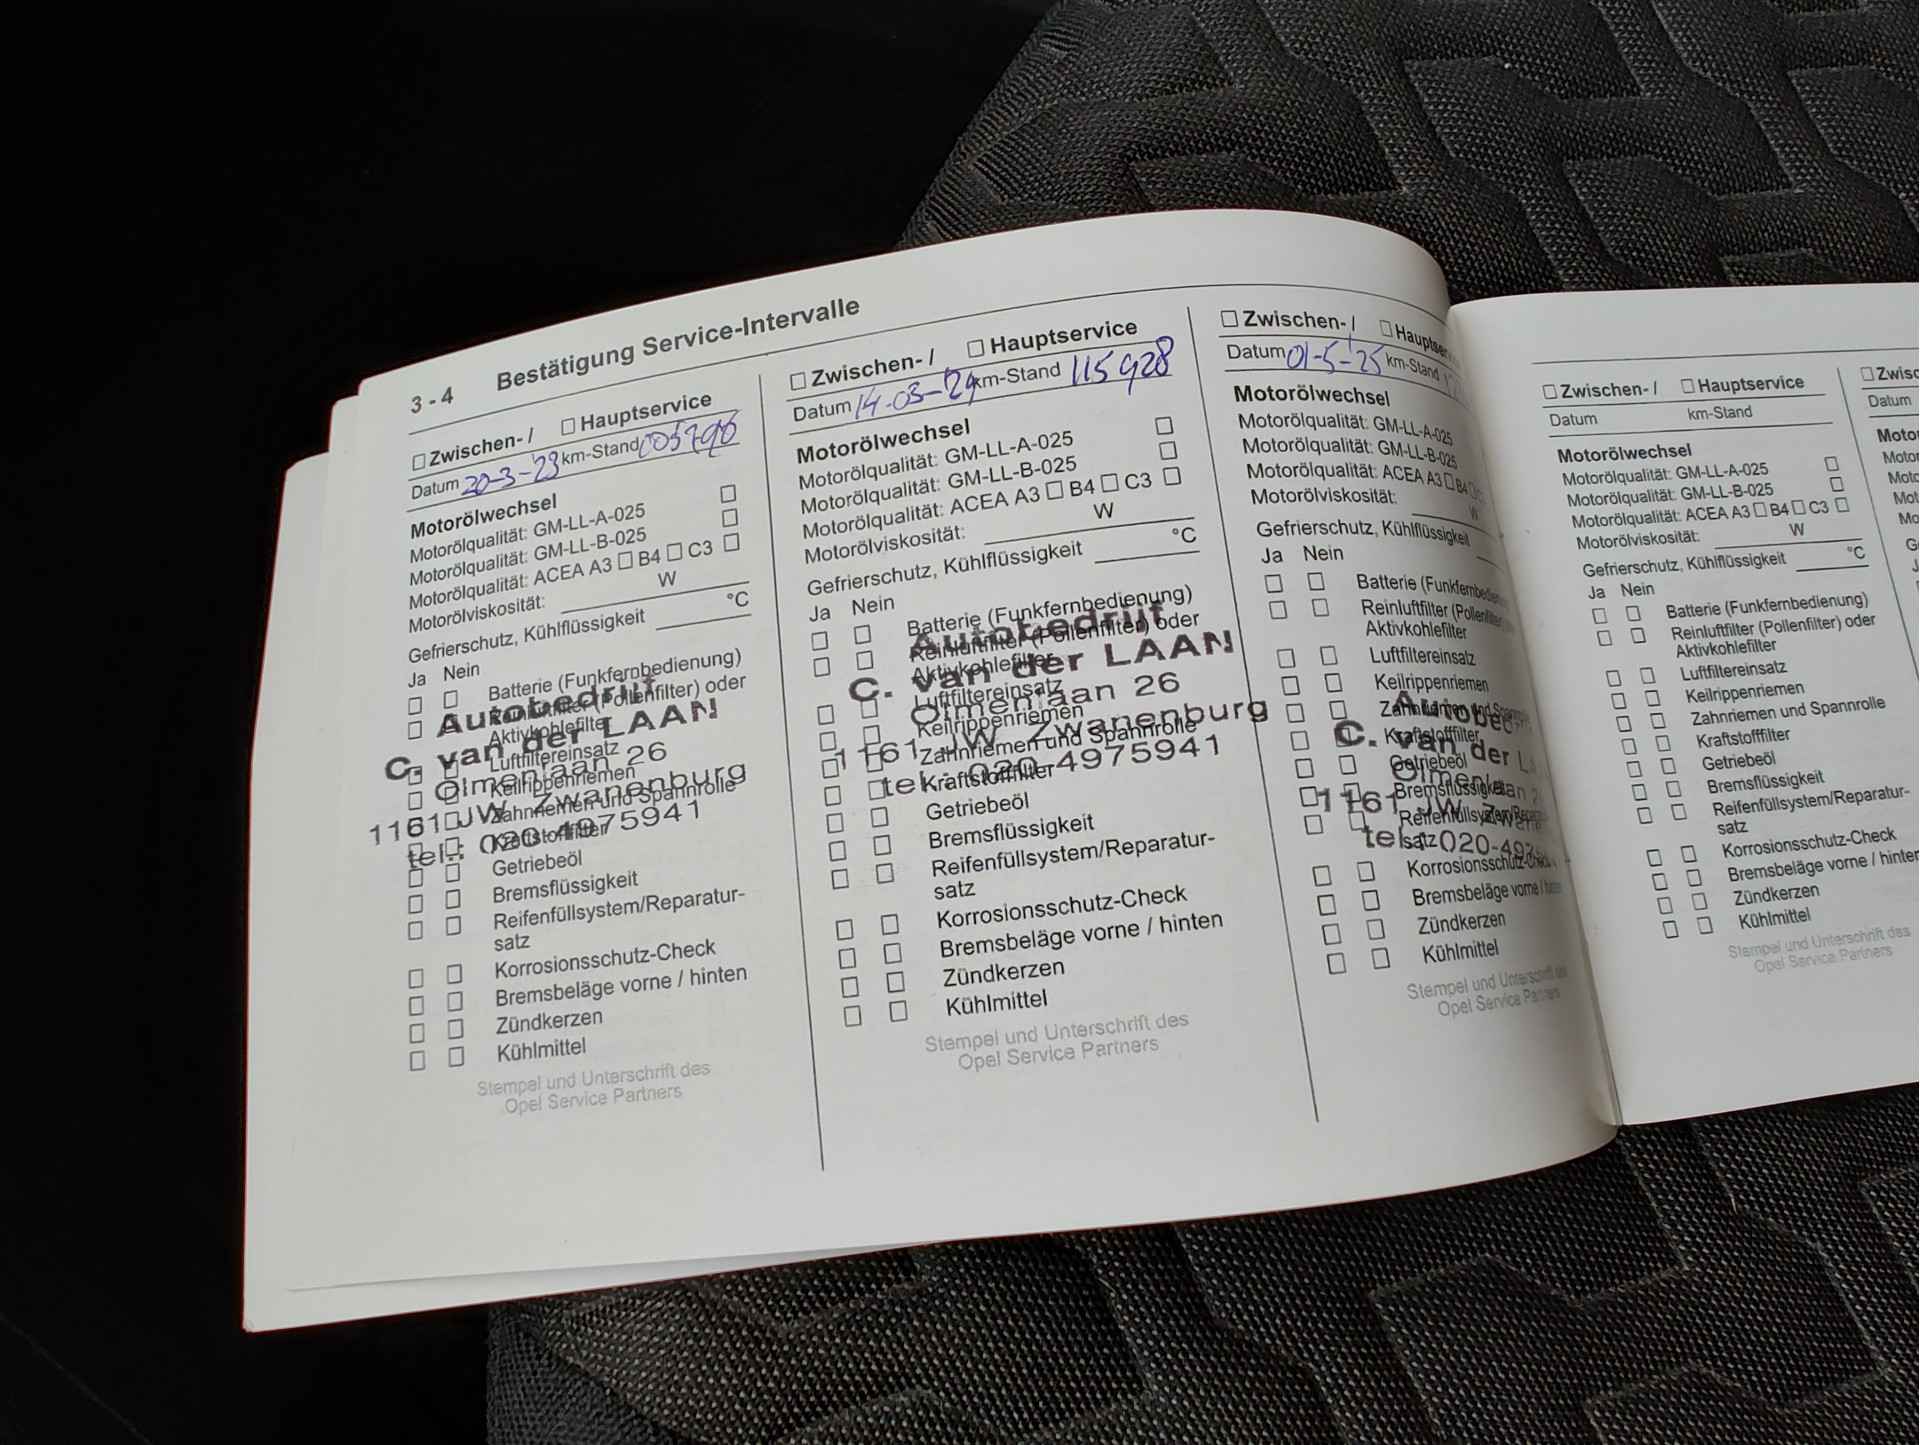 3 - 4 Bestätigung Service-Intervalle
☐ Zwischen- / ☐ Hauptservice
Datum 20-3-'23 km-Stand
Motorölwechsel
Motorölqualität: GM-LL-A-025 ☐
Motorölqualität: GM-LL-B-025 ☐
Motorölqualität: ACEA A3 ☐ B4 ☐ C3 ☐
Motorölviskosität: W
Gefrierschutz, Kühlflüssigkeit °C
Ja Nein
☐ ☐ Batterie (Funkfernbedienung)
☐ ☐ Reinluftfilter (Pollenfilter) oder
Aktivkohlefilter
☐ ☐ Luftfiltereinsatz
☐ ☐ Keilrippenriemen
☐ ☐ Zahnriemen und Spannrolle
☐ ☐ Kraftstofffilter
☐ ☐ Getriebeöl
☐ ☐ Bremsflüssigkeit
☐ ☐ Reifenfüllsystem/Reparatur-
satz
☐ ☐ Korrosionsschutz-Check
☐ ☐ Bremsbeläge vorne / hinten
☐ ☐ Zündkerzen
☐ ☐ Kühlmittel
Stempel und Unterschrift des
Opel Service Partners
Autobedrijf
C. van der LAAN
Olmenlaan 26
1161 JW Zwanenburg
tel.: 020-4975941
☐ Zwischen- / ☐ Hauptservice
Datum 14-03-'24 km-Stand 115928
Motorölwechsel
Motorölqualität: GM-LL-A-025 ☐
Motorölqualität: GM-LL-B-025 ☐
Motorölqualität: ACEA A3 ☐ B4 ☐ C3 ☐
Motorölviskosität: W
Gefrierschutz, Kühlflüssigkeit °C
Ja Nein
☐ ☐ Batterie (Funkfernbedienung)
☐ ☐ Reinluftfilter (Pollenfilter) oder
Aktivkohlefilter
☐ ☐ Luftfiltereinsatz
☐ ☐ Keilrippenriemen
☐ ☐ Zahnriemen und Spannrolle
☐ ☐ Kraftstofffilter
☐ ☐ Getriebeöl
☐ ☐ Bremsflüssigkeit
☐ ☐ Reifenfüllsystem/Reparatur-
satz
☐ ☐ Korrosionsschutz-Check
☐ ☐ Bremsbeläge vorne / hinten
☐ ☐ Zündkerzen
☐ ☐ Kühlmittel
Stempel und Unterschrift des
Opel Service Partners
Autobedrijf
C. van der LAAN
Olmenlaan 26
1161 JW Zwanenburg
tel.: 020-4975941
☐ Zwischen- / ☐ Hauptservice
Datum 01-5-'25 km-Stand
Motorölwechsel
Motorölqualität: GM-LL-A-025
Motorölqualität: GM-LL-B-025
Motorölqualität: ACEA A3 ☐ B4
Motorölviskosität: W
Gefrierschutz, Kühlflüssigkeit
Ja Nein
☐ ☐ Batterie (Funkfernbedienung
☐ ☐ Reinluftfilter (Pollenfilter)
Aktivkohlefilter
☐ ☐ Luftfiltereinsatz
☐ ☐ Keilrippenriemen
☐ ☐ Zahnriemen und Spannrolle
☐ ☐ Kraftstofffilter
☐ ☐ Getriebeöl
☐ ☐ Bremsflüssigkeit
☐ ☐ Reifenfüllsystem/Repara
satz
☐ ☐ Korrosionsschutz-Check
☐ ☐ Bremsbeläge vorne / hinten
☐ ☐ Zündkerzen
☐ ☐ Kühlmittel
Stempel und Unterschrift des
Opel Service Partners
Autobed
C. van der LA
Olmenlaan 2
1161 JW Zwane
tel.: 020-497
☐ Zwischen- / ☐ Hauptservice
Datum km-Stand
Motorölwechsel
Motorölqualität: GM-LL-A-025 ☐
Motorölqualität: GM-LL-B-025 ☐
Motorölqualität: ACEA A3 ☐ B4 ☐ C3 ☐
Motorölviskosität: W
Gefrierschutz, Kühlflüssigkeit °C
Ja Nein
☐ ☐ Batterie (Funkfernbedienung)
☐ ☐ Reinluftfilter (Pollenfilter) oder
Aktivkohlefilter
☐ ☐ Luftfiltereinsatz
☐ ☐ Keilrippenriemen
☐ ☐ Zahnriemen und Spannrolle
☐ ☐ Kraftstofffilter
☐ ☐ Getriebeöl
☐ ☐ Bremsflüssigkeit
☐ ☐ Reifenfüllsystem/Reparatur-
satz
☐ ☐ Korrosionsschutz-Check
☐ ☐ Bremsbeläge vorne / hinten
☐ ☐ Zündkerzen
☐ ☐ Kühlmittel
Stempel und Unterschrift des
Opel Service Partners
☐ Zwisc
Datum
Motor
Motor
Moto
Mot
Mo